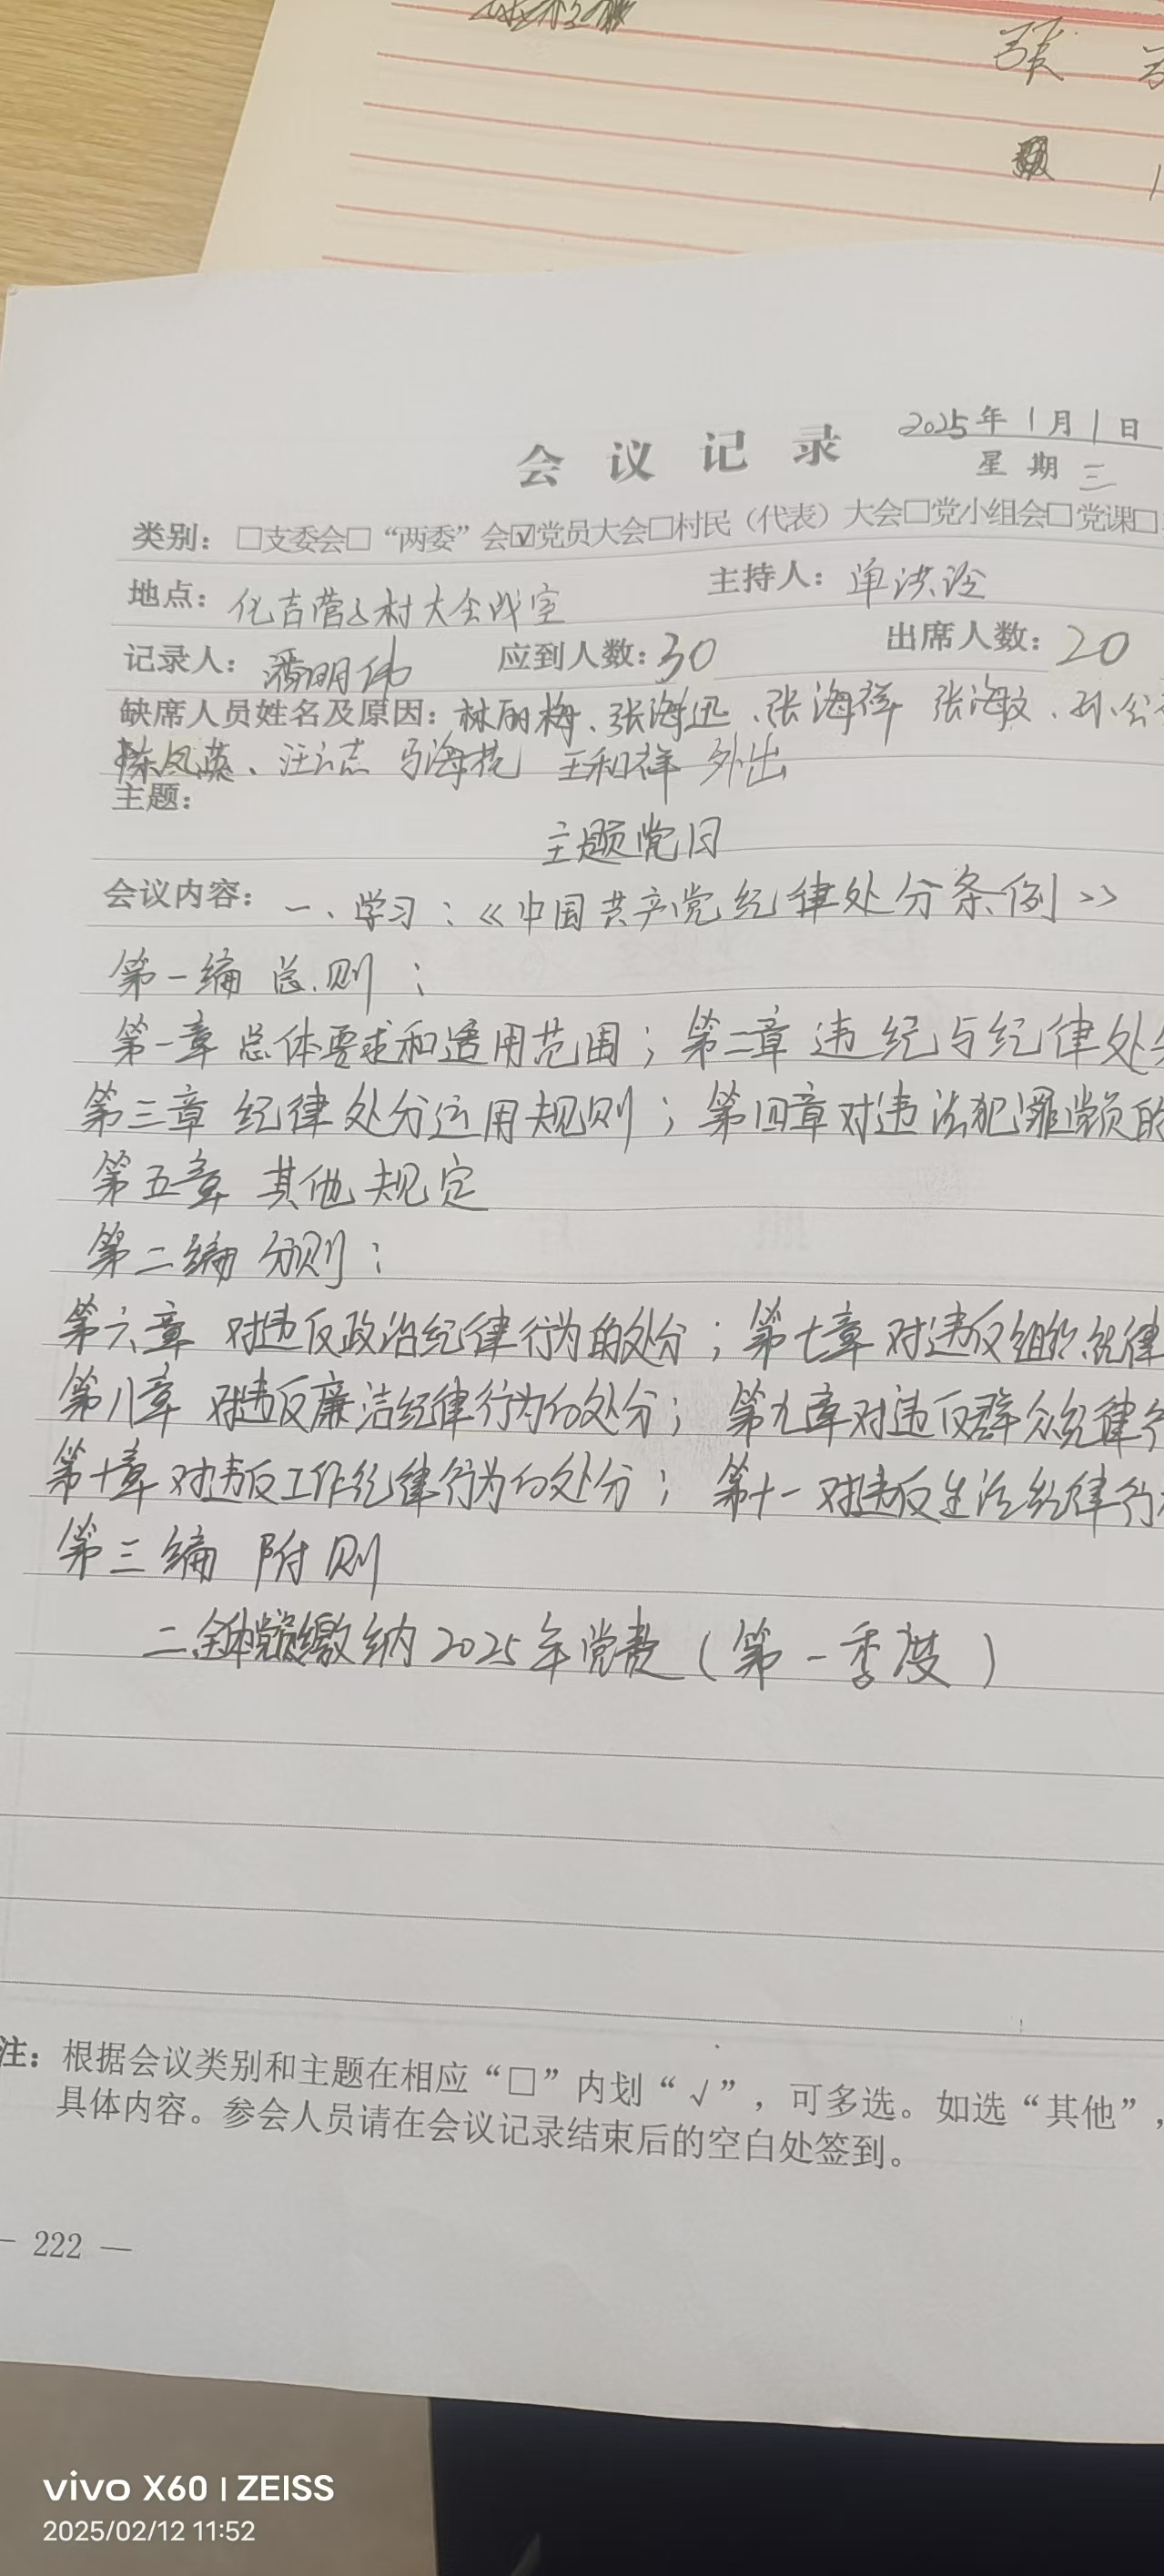 张
会议记录
2025年1月1日
星期三
类别：□支委会□“两委”会☑党员大会□村民（代表）大会□党小组会□党课□
地点：化吉营子村大会议室 主持人：单洪
记录人：潘明伟 应到人数：30 出席人数：20
缺席人员姓名及原因：林丽梅、张海迅、张海祥 张海文、孙
陈凤英、汪 志 马海花 王和祥 外出
主题：
主题党日
会议内容：一、学习：《中国共产党纪律处分条例》
第一编 总则：
第一章 总体要求和适用范围；第二章 违纪与纪律处
第三章 纪律处分运用规则；第四章对违法犯罪党员的
第五章 其他规定
第二编 分则：
第六章 对违反政治纪律行为的处分；第七章 对违反组织纪律
第八章 对违反廉洁纪律行为的处分；第九章对违反群众纪律行
第十章 对违反工作纪律行为的处分；第十一 对违反生活纪律行
第三编 附则
二、全体党员缴纳2025年党费（第一季度）
注：根据会议类别和主题在相应“□”内划“√”，可多选。如选“其他”，
具体内容。参会人员请在会议记录结束后的空白处签到。
— 222 —
vivo X60 | ZEISS
2025/02/12 11:52